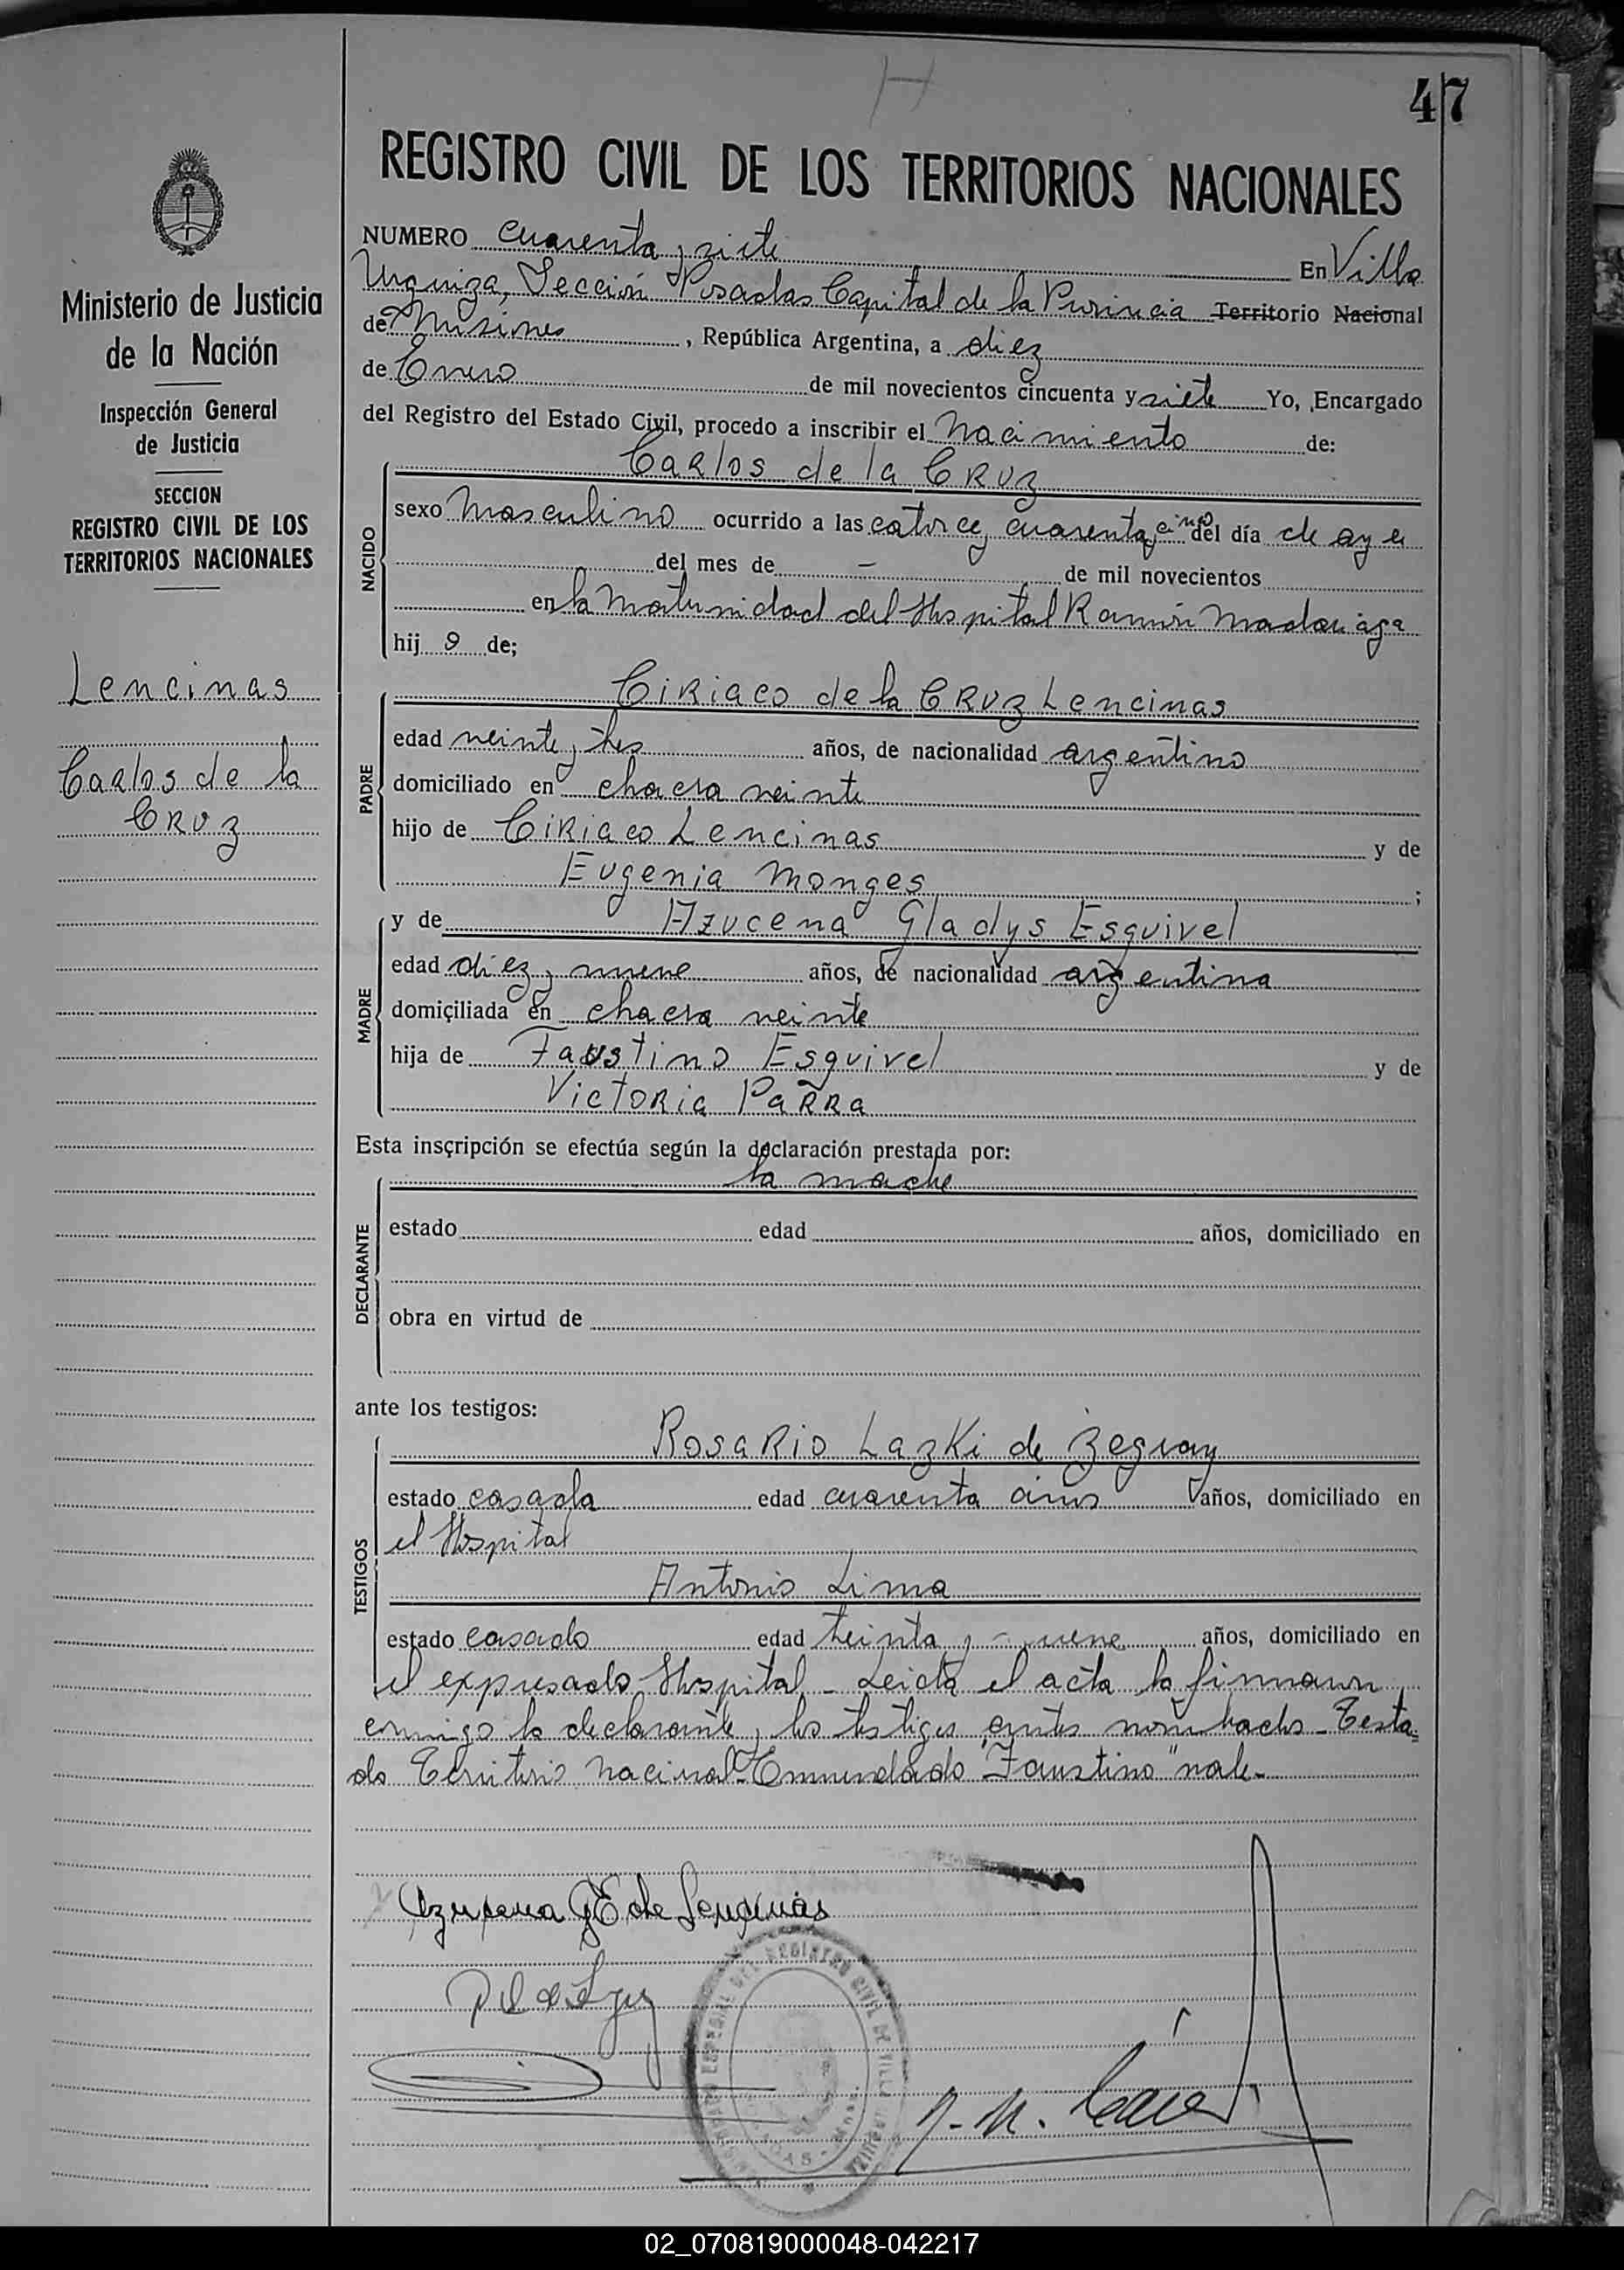 47
REGISTRO CIVIL DE LOS TERRITORIOS NACIONALES
NUMERO cuarenta y siete En Villa
Urquiza, Sección Posadas Capital de la Provincia Territorio Nacional
de Misiones, República Argentina, a diez
de Enero de mil novecientos cincuenta y siete Yo, Encargado
del Registro del Estado Civil, procedo a inscribir el nacimiento de:
Carlos de la CRUZ
NACIDO
sexo masculino ocurrido a las catorce y cuarenta y cinco del día de ayer
del mes de - de mil novecientos
en la Maternidad del Hospital Ramón Madariaga
hij o de;
CIRIACO de la CRUZ Lencinas
PADRE
edad veinte y tres años, de nacionalidad argentino
domiciliado en chacra veinte
hijo de CIRIACO Lencinas y de
Eugenia Monges;
y de Azucena Gladys Esquivel
MADRE
edad diez y nueve años, de nacionalidad argentina
domiciliada en chacra veinte
hija de Faustino Esquivel y de
Victoria PaRRa
Esta inscripción se efectúa según la declaración prestada por:
la madre
DECLARANTE
estado edad años, domiciliado en
obra en virtud de
ante los testigos:
Rosario Lazki de
TESTIGOS
estado casada edad cuarenta años años, domiciliado en
el Hospital
Antonio Lima
estado casado edad treinta y nueve años, domiciliado en
el expresado Hospital - Leida el acta la firmaron
conmigo la declarante y los testigos antes nombrados - Testa-
do Territorio Nacional - Enmendado "Faustino" vale -
Azucena G E de Lencinas
Ministerio de Justicia
de la Nación
Inspección General
de Justicia
SECCION
REGISTRO CIVIL DE LOS
TERRITORIOS NACIONALES
Lencinas
Carlos de la
CRUZ
02_070819000048-042217